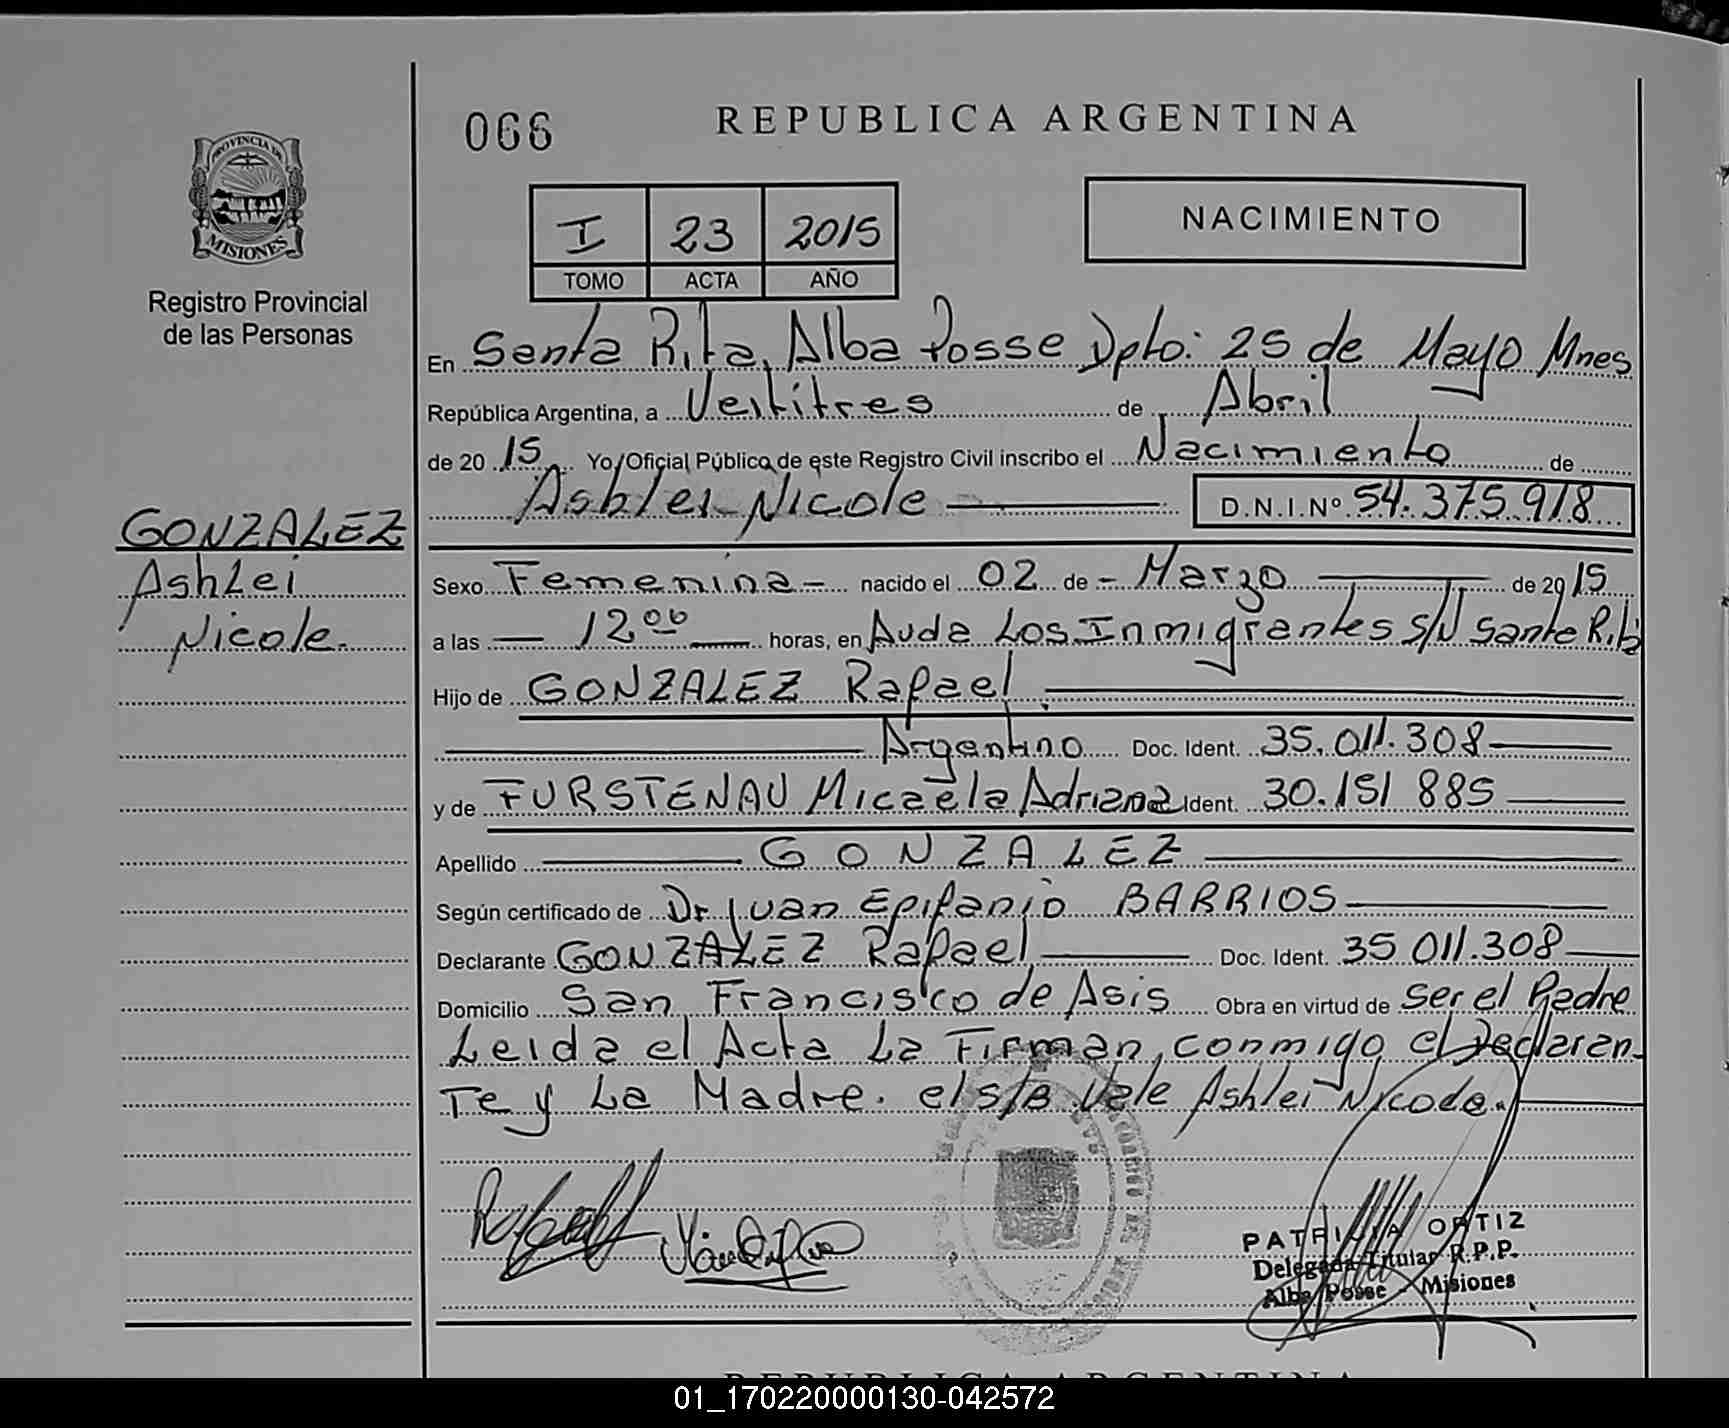 066
REPUBLICA ARGENTINA
PROVINCIA DE
MISIONES
Registro Provincial
de las Personas
I 23 2015
TOMO ACTA AÑO
NACIMIENTO
En Santa Rita, Alba Posse Dpto: 25 de Mayo Mnes
República Argentina, a Veititres de Abril
de 20 15 Yo, Oficial Público de este Registro Civil inscribo el Nacimiento de
Ashlei Nicole D.N.I.Nº 54.375.918
GONZALEZ
Ashlei
Nicole.
Sexo Femenina - nacido el 02 de - Marzo de 20 15
a las 12 00 horas, en Avda Los Inmigrantes S/N Santa Rita
Hijo de GONZALEZ Rafael
Argentino Doc. Ident. 35.011.308
y de FURSTENAU Micaela Adriana Doc. Ident. 30.151 885
Apellido GONZALEZ
Según certificado de Dr Juan Epifanio BARRIOS
Declarante GONZALEZ Rafael Doc. Ident. 35 011.308
Domicilio San Francisco de Asis Obra en virtud de ser el Padre
Leida el Acta La Firman, conmigo el Declaran-
Te y La Madre. el s/B Vale Ashlei Nicole.
PATRICIA ORTIZ
Delegada Titular R.P.P.
Alba Posse - Misiones
REPUBLICA ARGENTINA
01_170220000130-042572